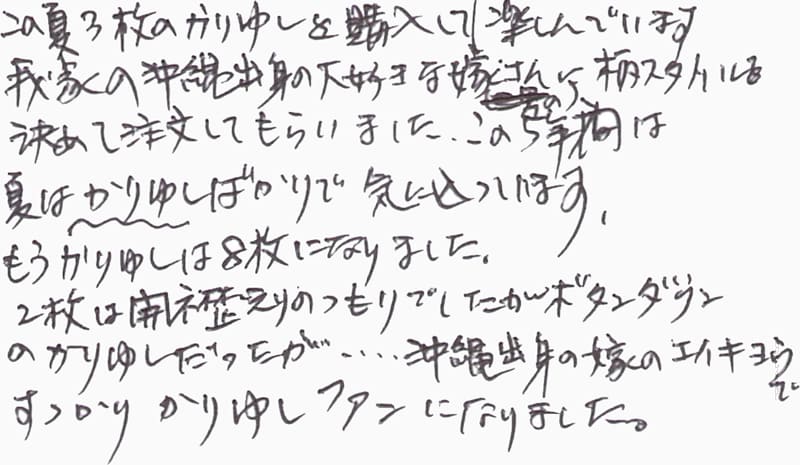 この夏3枚のかりゆしを購入して楽しんでいます
我家の沖縄出身の大好きな嫁さんに柄スタイルを
決めて注文してもらいました、この5年間は
夏はかりゆしばかりで気に入っています、
もうかりゆしは8枚になりました。
2枚は開襟えりのつもりでしたがボタンダウン
のかりゆしだったが‥‥‥沖縄出身の嫁のエイキョウで
すっかりかりゆしファンになりました。